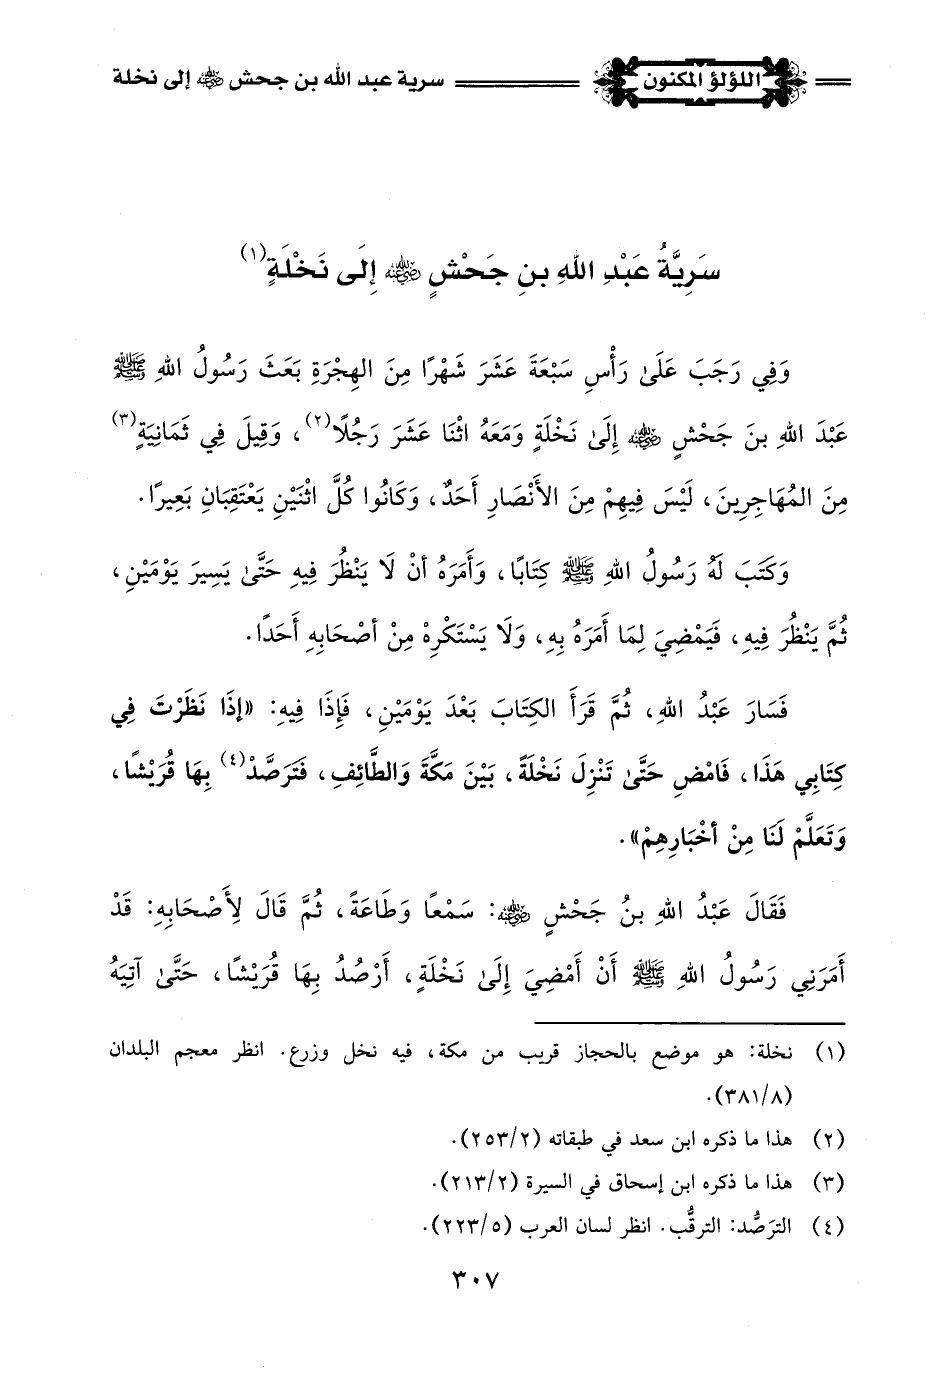 اللؤلؤ المكنون سرية عبد الله بن جحش رضي الله عنه إلى نخلة
سَرِيَّةُ عَبْدِ اللهِ بنِ جَحْشٍ رضي الله عنه إِلَى نَخْلَةٍ(١)
وَفِي رَجَبَ عَلَىٰ رَأْسِ سَبْعَةَ عَشَرَ شَهْرًا مِنَ الهِجْرَةِ بَعَثَ رَسُولُ اللهِ ﷺ
عَبْدَ اللهِ بنَ جَحْشٍ رضي الله عنه إِلَىٰ نَخْلَةٍ وَمَعَهُ اثْنَا عَشَرَ رَجُلًا(٢)، وَقِيلَ فِي ثَمَانِيَةٍ(٣)
مِنَ المُهَاجِرِينَ، لَيْسَ فِيهِمْ مِنَ الأَنْصَارِ أَحَدٌ، وَكَانُوا كُلَّ اثْنَيْنِ يَعْتَقِبَانِ بَعِيرًا.
وَكَتَبَ لَهُ رَسُولُ اللهِ ﷺ كِتَابًا، وَأَمَرَهُ أنْ لَا يَنْظُرَ فِيهِ حَتَّىٰ يَسِيرَ يَوْمَيْنِ،
ثُمَّ يَنْظُرَ فِيهِ، فَيَمْضِيَ لِمَا أَمَرَهُ بِهِ، وَلَا يَسْتَكْرِهْ مِنْ أصْحَابِهِ أَحَدًا.
فَسَارَ عَبْدُ اللهِ، ثُمَّ قَرَأَ الكِتَابَ بَعْدَ يَوْمَيْنِ، فَإِذَا فِيهِ: «إذَا نَظَرْتَ فِي
كِتَابِي هَذَا، فَامْضِ حَتَّىٰ تَنْزِلَ نَخْلَةً، بَيْنَ مَكَّةَ وَالطَّائِفِ، فَتَرَصَّدْ(٤) بِهَا قُرَيْشًا،
وَتَعَلَّمْ لَنَا مِنْ أخْبَارِهِمْ».
فَقَالَ عَبْدُ اللهِ بنُ جَحْشٍ رضي الله عنه: سَمْعًا وَطَاعَةً، ثُمَّ قَالَ لِأَصْحَابِهِ: قَدْ
أَمَرَنِي رَسُولُ اللهِ ﷺ أَنْ أَمْضِيَ إِلَىٰ نَخْلَةٍ، أَرْصُدُ بِهَا قُرَيْشًا، حَتَّىٰ آتِيَهُ
(١) نخلة: هو موضع بالحجاز قريب من مكة، فيه نخل وزرع. انظر معجم البلدان
(٣٨١/٨).
(٢) هذا ما ذكره ابن سعد في طبقاته (٢٥٣/٢).
(٣) هذا ما ذكره ابن إسحاق في السيرة (٢١٣/٢).
(٤) الترَصُّد: الترقُّب. انظر لسان العرب (٢٢٣/٥).
٣٠٧